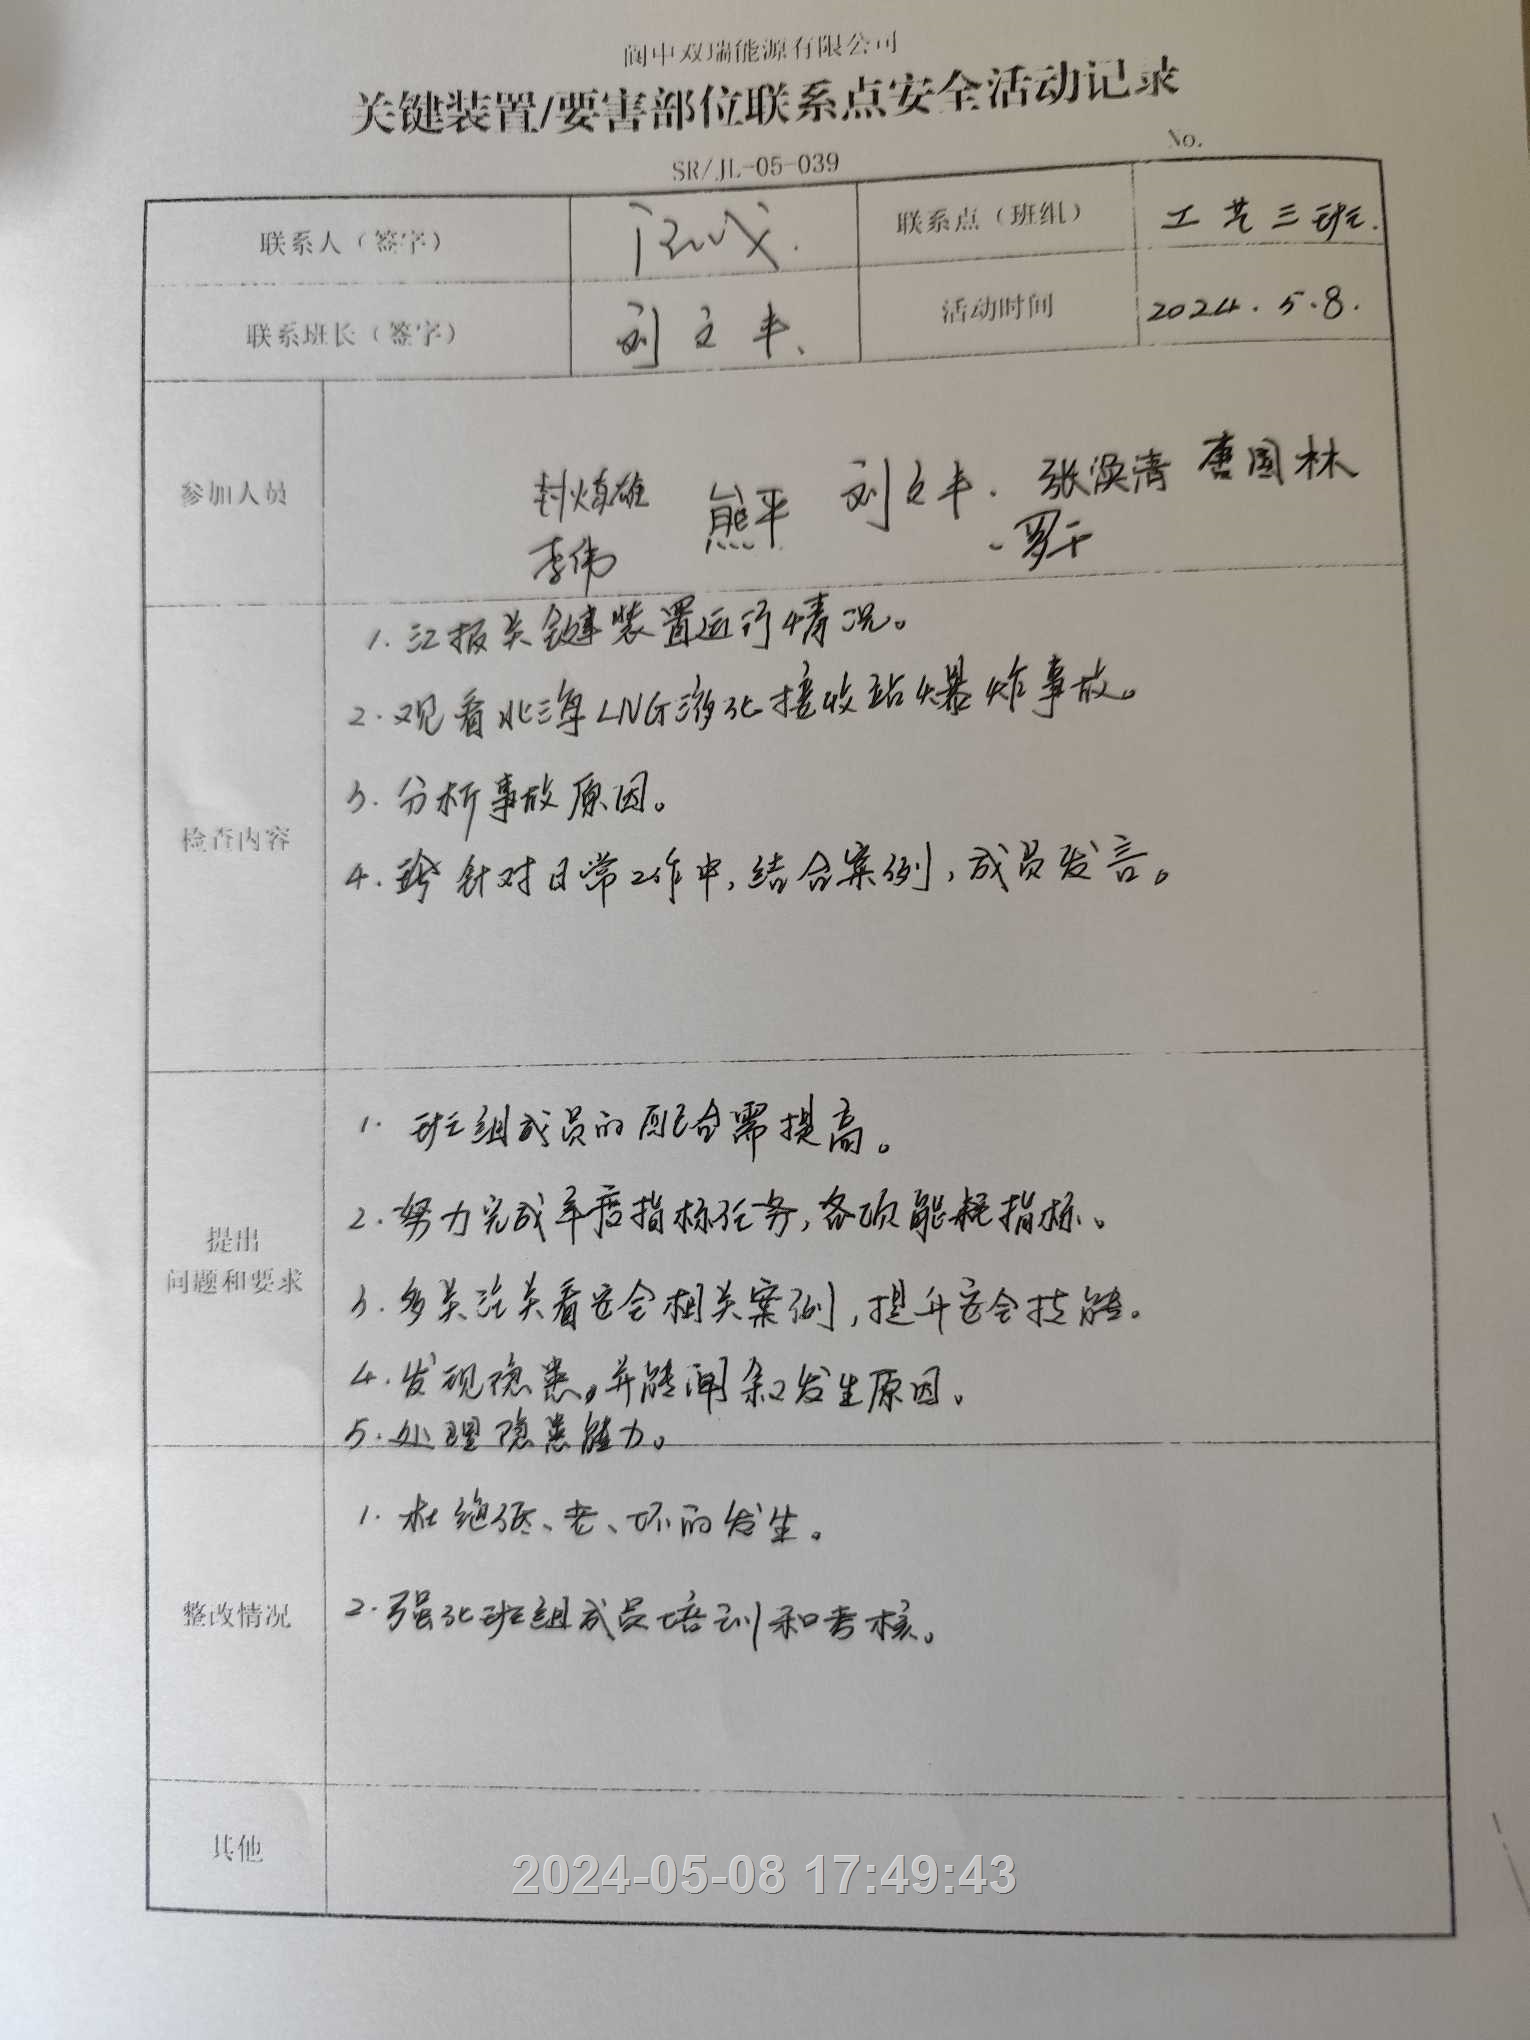 阆中双瑞能源有限公司
关键装置/要害部位联系点安全活动记录
SR/JL-05-039
No.
联系人（签字）
联系点（班组） 工艺三班.
联系班长（签字） 刘文丰、
活动时间 2024.5.8.
参加人员
熊平 刘文丰. 张涣清 唐国林
李伟 罗干
检查内容
1. 汇报关键装置运行情况。
2. 观看北海LNG液化接收站爆炸事故。
3. 分析事故原因。
4. 针对日常工作中,结合案例,成员发言。
提出
问题和要求
1. 班组成员的配合需提高。
2. 努力完成年度指标任务,各项能耗指标。
3. 多关注关看安全相关案例,提升安全技能。
4. 发现隐患。并能闻知发生原因。
5. 处理隐患能力。
整改情况
1. 杜绝低、老、坏的发生。
2. 强化班组成员培训和考核。
其他
2024-05-08 17:49:43